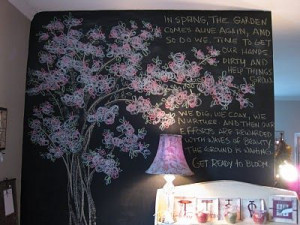 IN SPRING, THE GARDEN
COMES ALIVE AGAIN, AND
SO DO WE. TIME TO GET
OUR HANDS
DIRTY, AND
HELP THINGS
GROW.
WE DIG, WE COAX, WE
NURTURE AND THEN OUR
EFFORTS ARE REWARDED
WITH WAVES OF BEAUTY.
THE GROUND IS WAITING.
GET READY TO BLOOM.